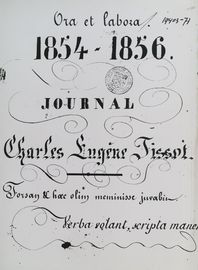 Ora et labora!
1854-1856.
JOURNAL
Charles Eugène Tissot.
Forsan & hæc olim meminisse juvabit
Verba volant, scripta manen